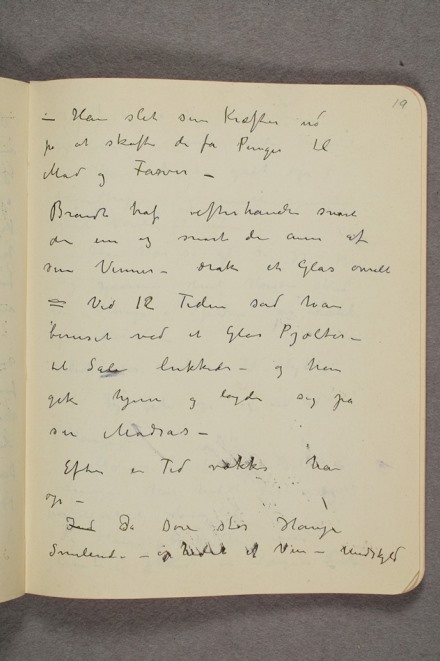 19
– Han slet sine Kræfter ud
på at skaffe de få Penge til
Mad og Farver –
Brandt traf efterhånden snart
den ene og snart den anden af
sine Venner – drak et Glas
= Ved 12 Tiden sad han
beruset ved et Glas Pjolter –
til lukkedes – og han
gik hjem og lagde sig på
sin Madras –
Efter en Tid vækkes han
op –
Da Dore står Hauge
Smilende – og af Vin – Undskyld